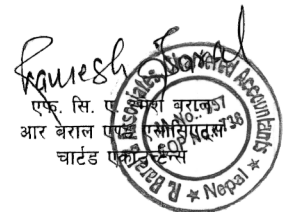 Ramesh Baral
एफ. सि. ए. रमेश बराल
आर बराल एण्ड एसोसिएट्स
चार्टड एकाउन्टेन्स
R. Baral & Associates, Chartered Accountants
COP No.: 738
★ Nepal ★